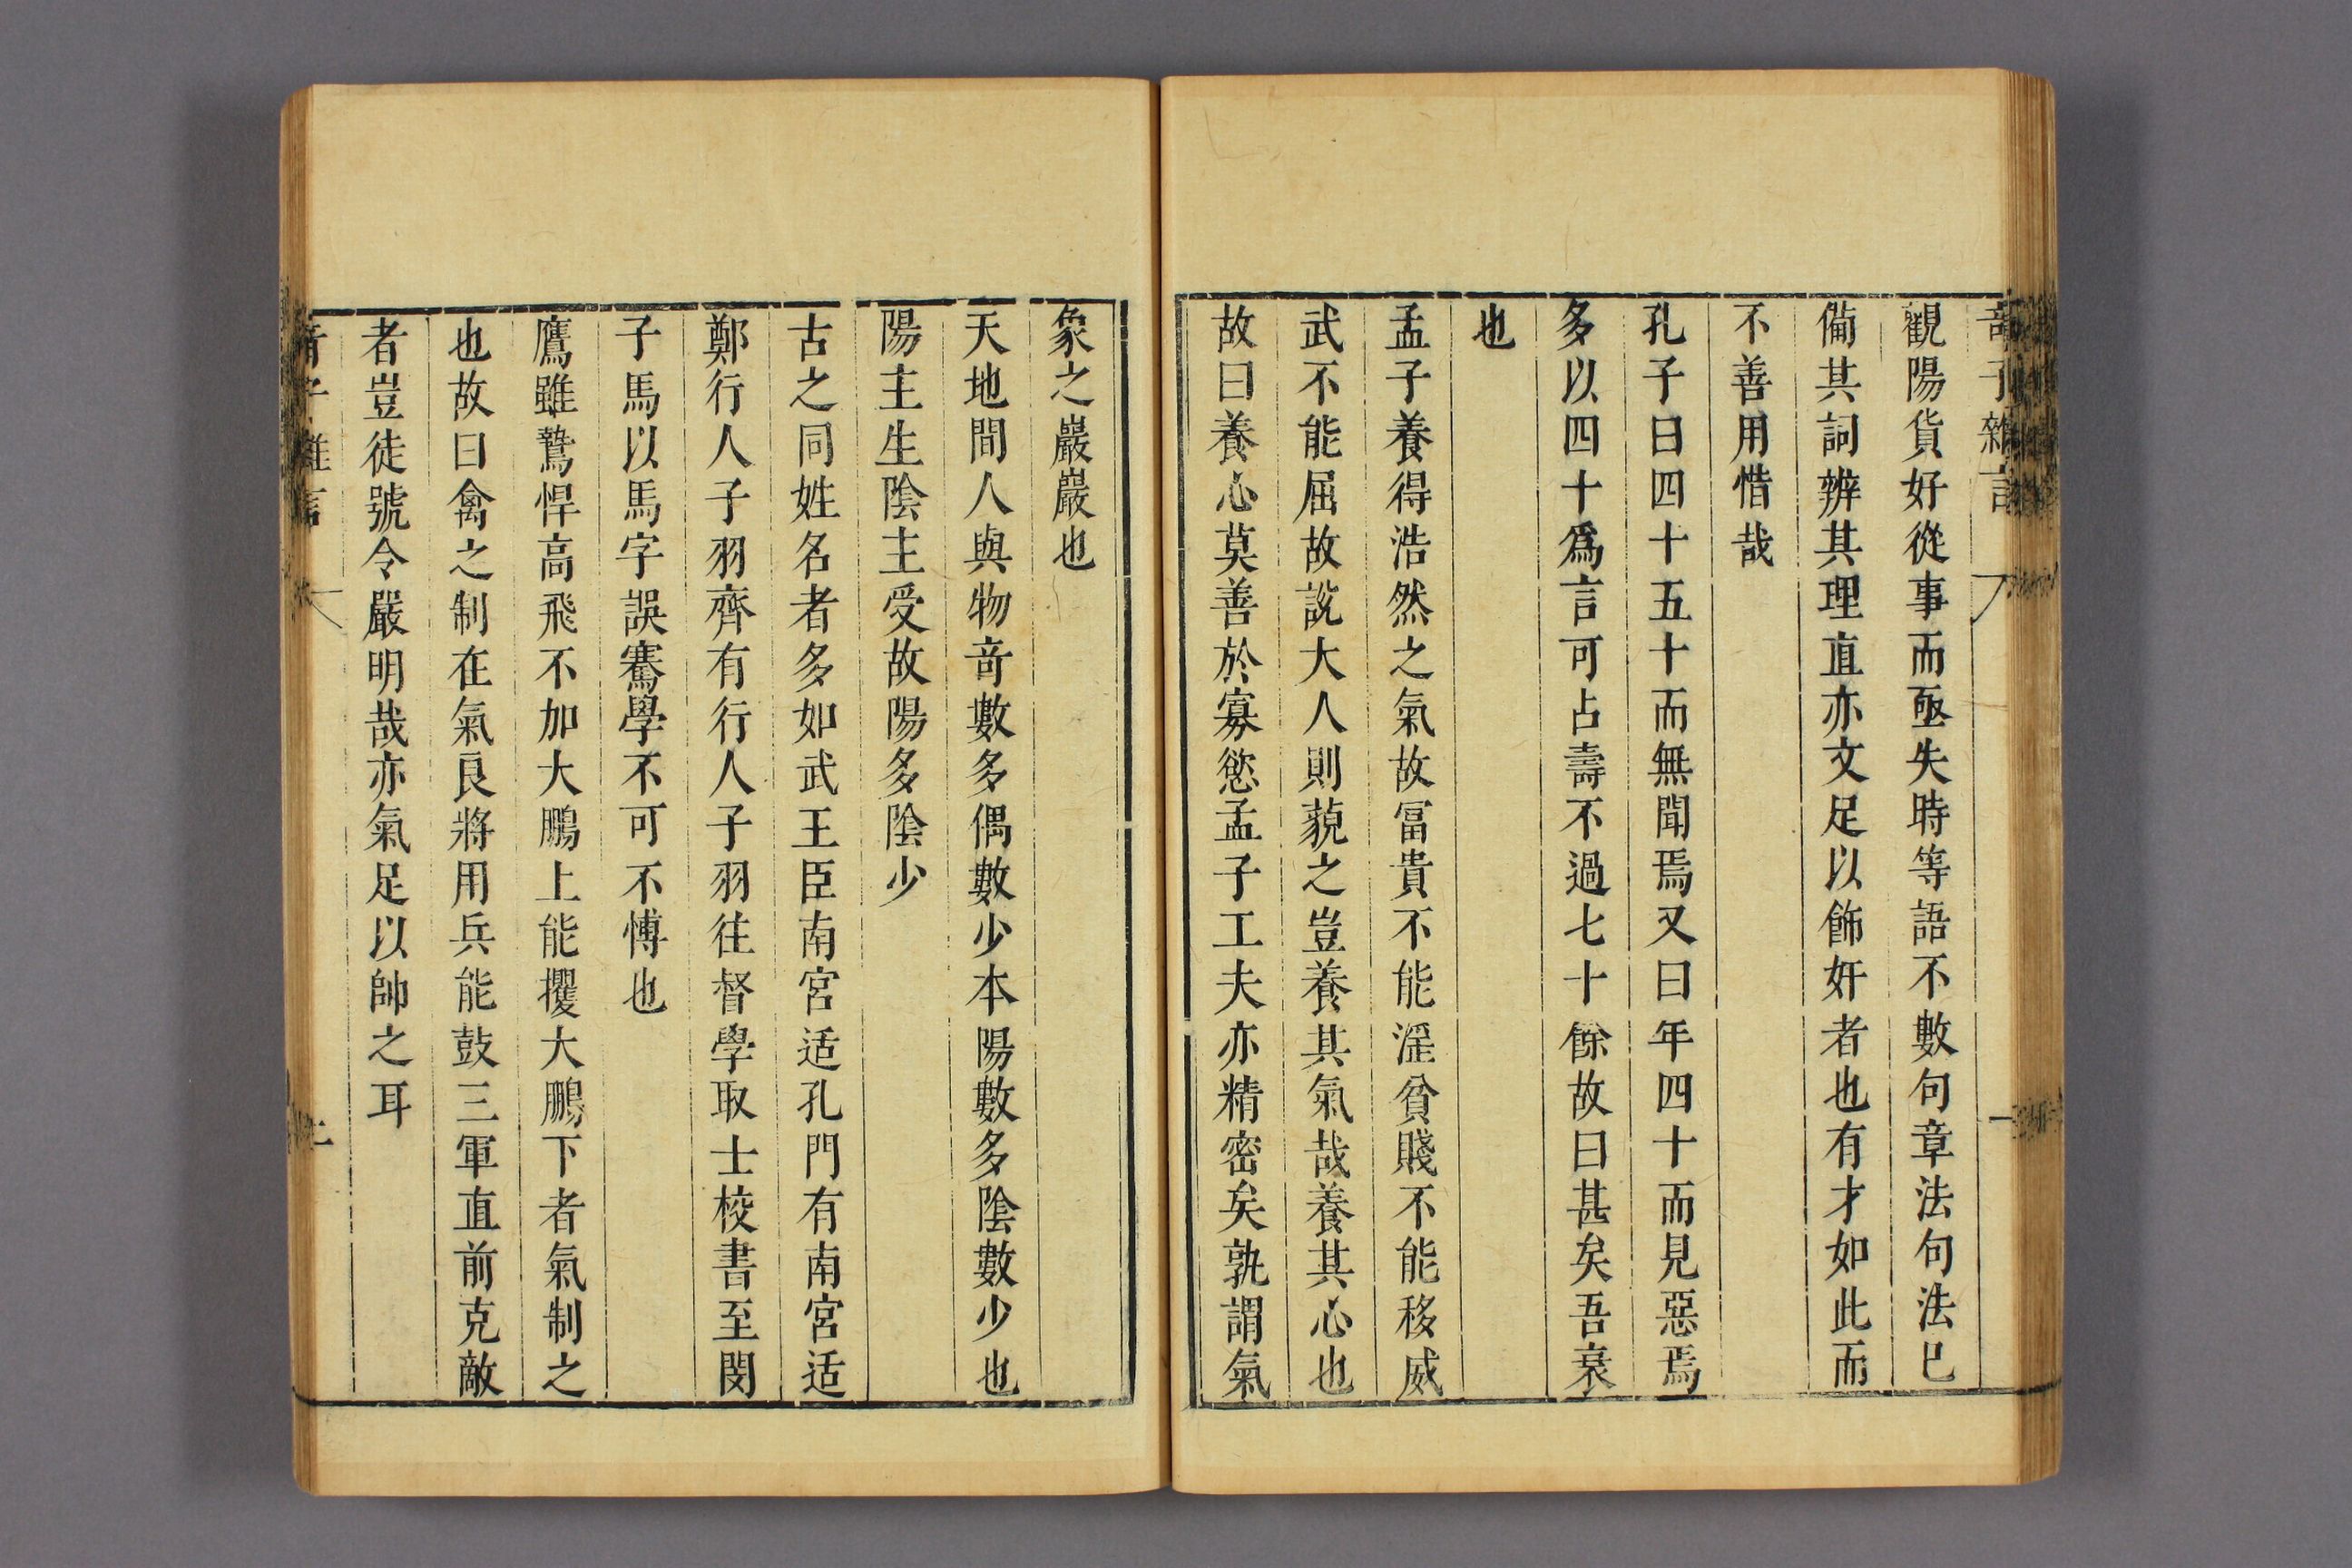 子雜言
觀陽貨好從事而亟失時等語不數句章法句法已
備其詞辨其理直亦文足以飾奸者也有才如此而
不善用惜哉
孔子曰四十五十而無聞焉又曰年四十而見惡焉
多以四十爲言可占壽不過七十餘故曰甚矣吾衰
也
孟子養得浩然之氣故冨貴不能滛貧賤不能移威
武不能屈故説大人則藐之豈養其氣哉養其心也
故曰養心莫善於寡慾孟子工夫亦精密矣孰謂氣
象之巖巖也
天地間人與物竒數多偶數少本陽數多陰數少也
陽主生陰主受故陽多陰少
古之同姓名者多如武王臣南宮适孔門有南宮适
鄭行人子羽齊有行人子羽往督學取士校書至閔
子馬以馬字誤騫學不可不愽也
鷹雖鷙悍高飛不加大鵬上能攫大鵬下者氣制之
也故曰禽之制在氣良將用兵能鼓三軍直前克敵
者豈徒號令嚴明哉亦氣足以帥之耳
子雜言